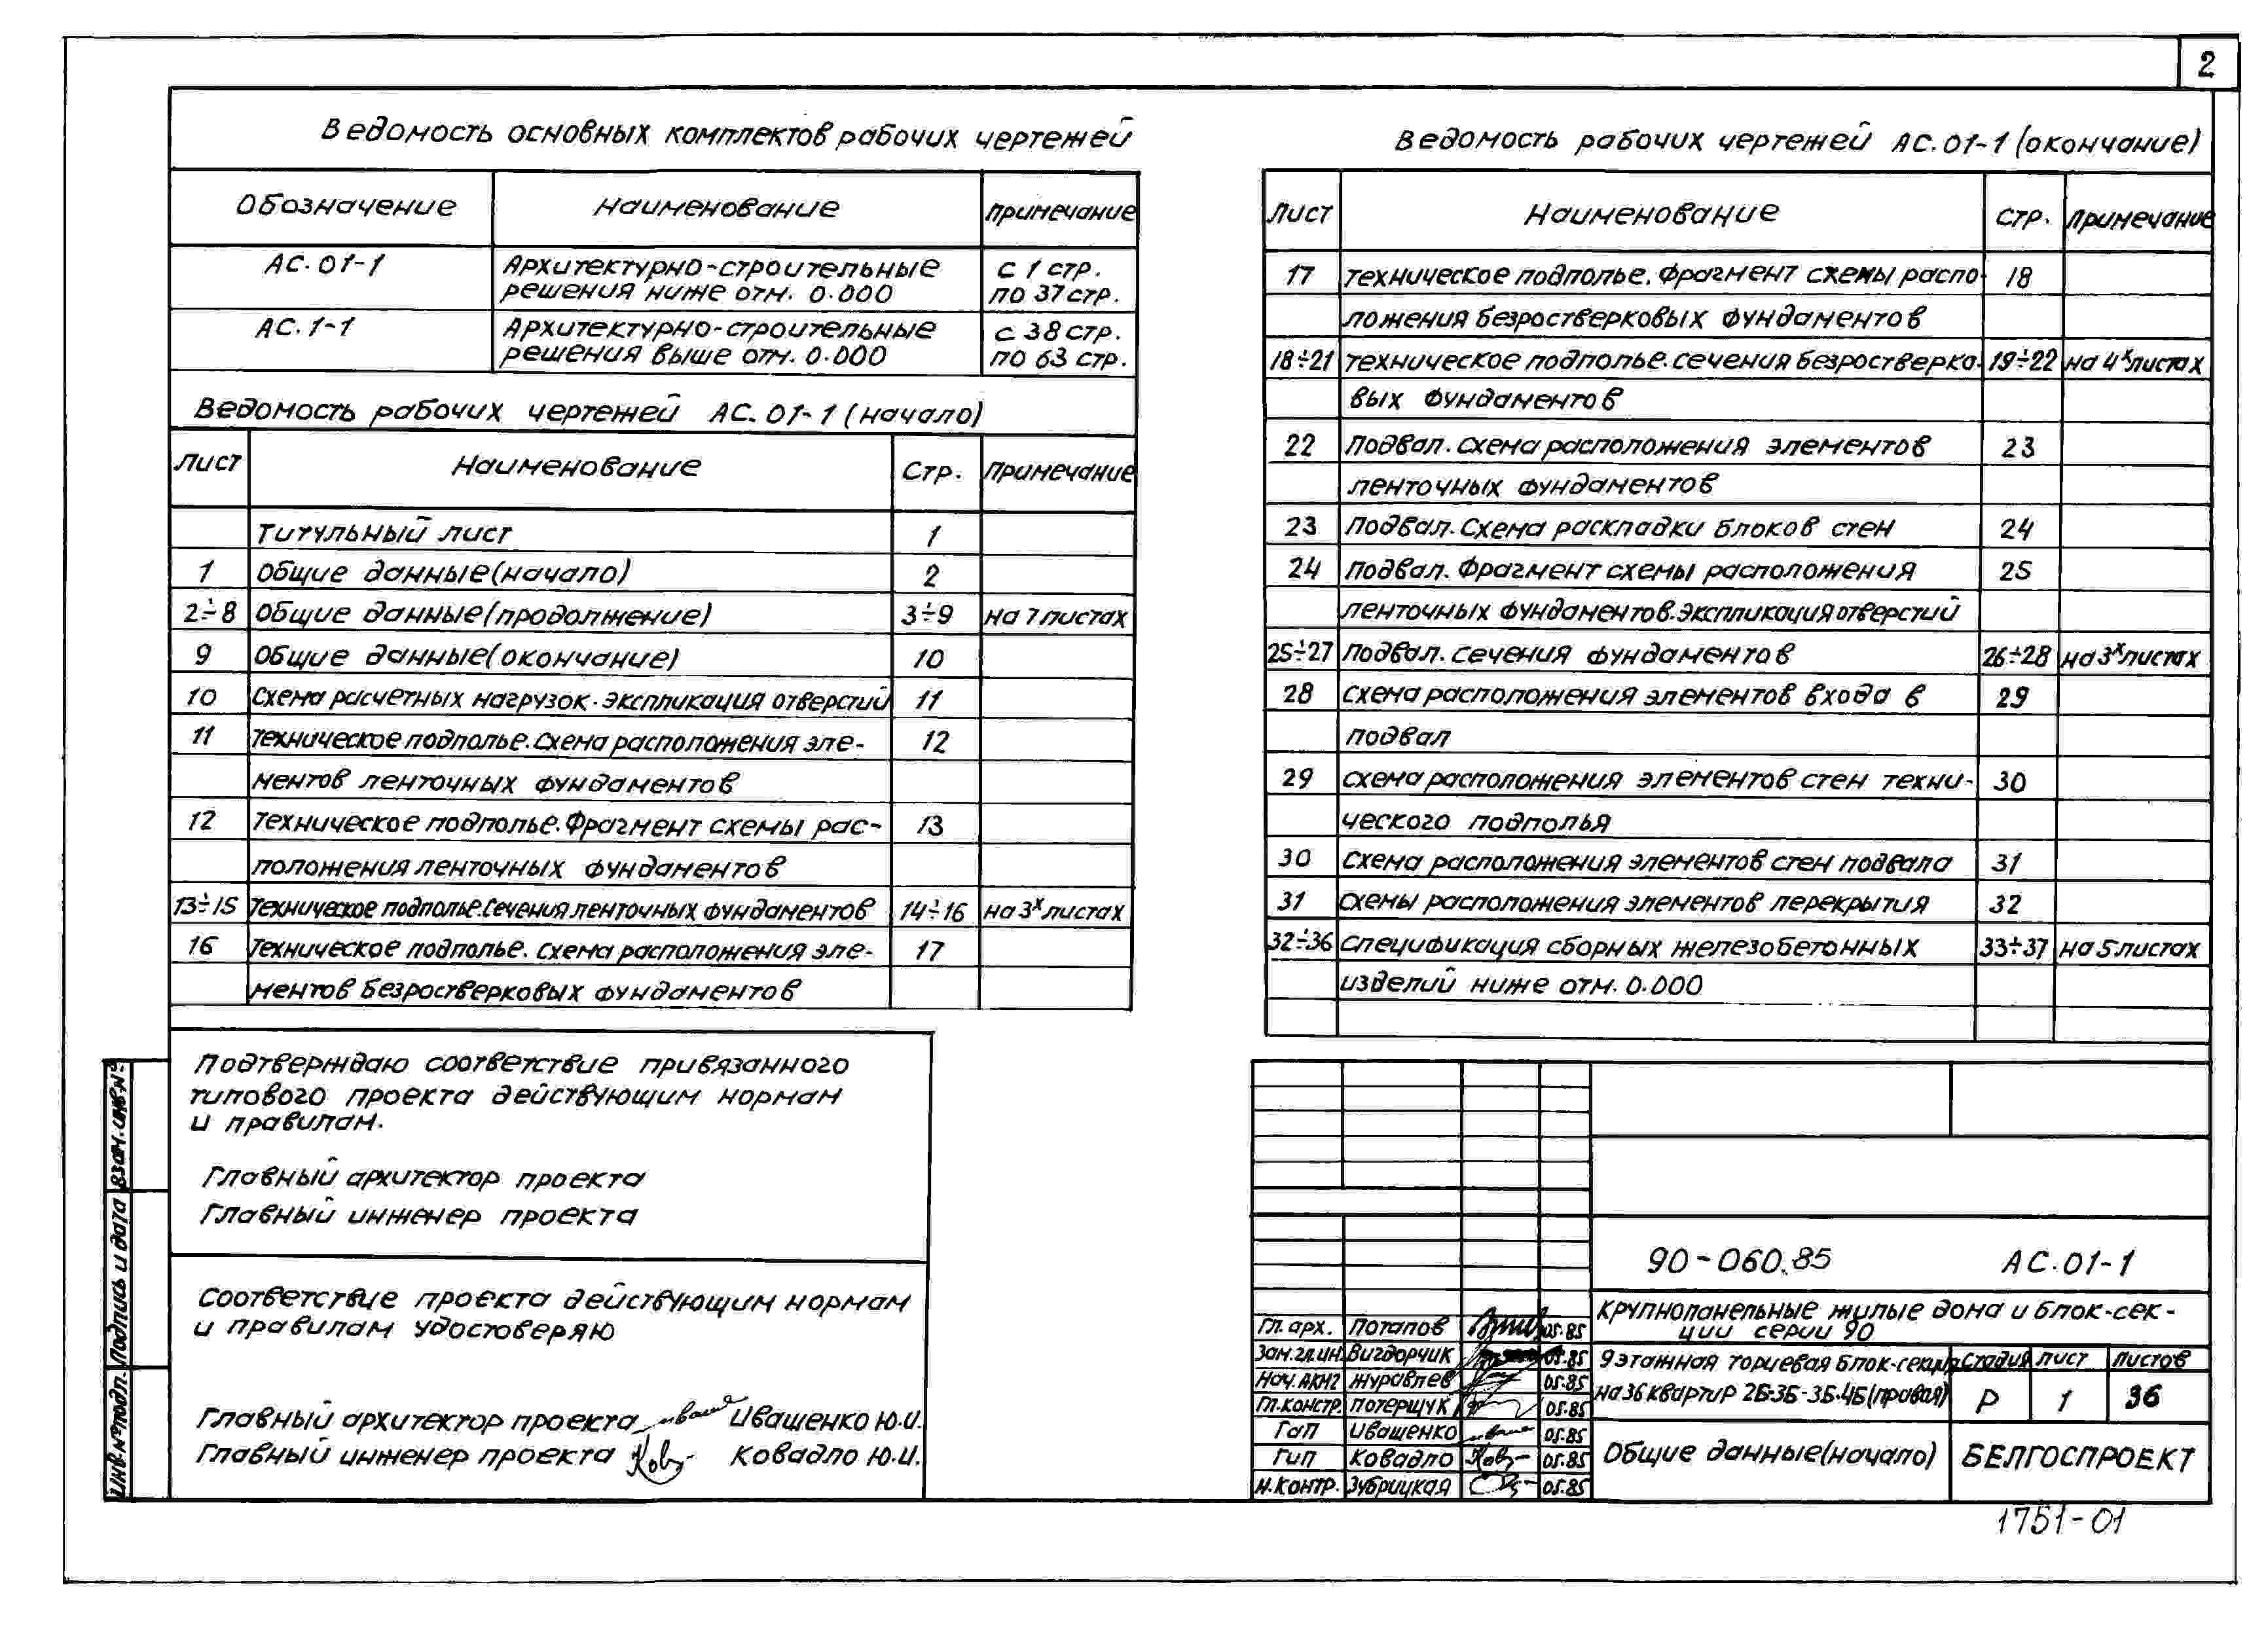 2
Ведомость основных комплектов рабочих чертежей
Обозначение Наименование Примечание
АС.01-1 Архитектурно-строительные с 1 стр.
решения ниже отм. 0.000 по 37 стр.
АС.1-1 Архитектурно-строительные с 38 стр.
решения выше отм. 0.000 по 63 стр.
Ведомость рабочих чертежей АС.01-1 (начало)
Лист Наименование Стр. Примечание
Титульный лист 1
1 Общие данные (начало) 2
2÷8 Общие данные (продолжение) 3÷9 на 7 листах
9 Общие данные (окончание) 10
10 Схема расчетных нагрузок. Экспликация отверстий 11
11 Техническое подполье. Схема расположения эле- 12
ментов ленточных фундаментов
12 Техническое подполье. Фрагмент схемы рас- 13
положения ленточных фундаментов
13÷15 Техническое подполье. Сечения ленточных фундаментов 14÷16 на 3х листах
16 Техническое подполье. Схема расположения эле- 17
ментов безростверковых фундаментов
Ведомость рабочих чертежей АС.01-1 (окончание)
Лист Наименование Стр. Примечание
17 Техническое подполье. Фрагмент схемы распо- 18
ложения безростверковых фундаментов
18÷21 Техническое подполье. Сечения безростверко- 19÷22 на 4х листах
вых фундаментов
22 Подвал. Схема расположения элементов 23
ленточных фундаментов
23 Подвал. Схема раскладки блоков стен 24
24 Подвал. Фрагмент схемы расположения 25
ленточных фундаментов. Экспликация отверстий
25÷27 Подвал. Сечения фундаментов 26÷28 на 3х листах
28 Схема расположения элементов входа в 29
подвал
29 Схема расположения элементов стен техни- 30
ческого подполья
30 Схема расположения элементов стен подвала 31
31 Схемы расположения элементов перекрытия 32
32÷36 Спецификация сборных железобетонных 33÷37 на 5 листах
изделий ниже отм. 0.000
Подтверждаю соответствие привязанного
типового проекта действующим нормам
и правилам.
Главный архитектор проекта
Главный инженер проекта
Соответствие проекта действующим нормам
и правилам удостоверяю
Главный архитектор проекта Иващенко Ю.И.
Главный инженер проекта Ков Ковадло Ю.И.
Взам. инв.№
Подпись и дата
Инв.№ подл.
90-060.85 АС.01-1
Крупнопанельные жилые дома и блок-сек-
ции серии 90
Гл. арх. Потапов 05.85
Зам.гл.ин. Вигдорчик 05.85
Нач.АКМ2 Журавлев 05.85
Гл.констр. Потерщук 05.85
ГАП Иващенко 05.85
ГИП Ковадло Ков 05.85
Н.контр. Зубрицкая 05.85
9 этажная торцевая блок-секция
на 36 квартир 2Б-3Б-3Б-4Б (правая)
Стадия Лист Листов
Р 1 36
Общие данные (начало)
БЕЛГОСПРОЕКТ
1751-01